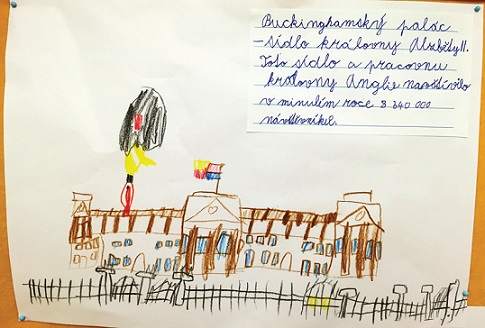 Buckinghamský palác
– sídlo královny Alžběty II.
Toto sídlo a pracovnu
královny Anglie navštívilo
v minulém roce 8 340 000
návštěvníků.